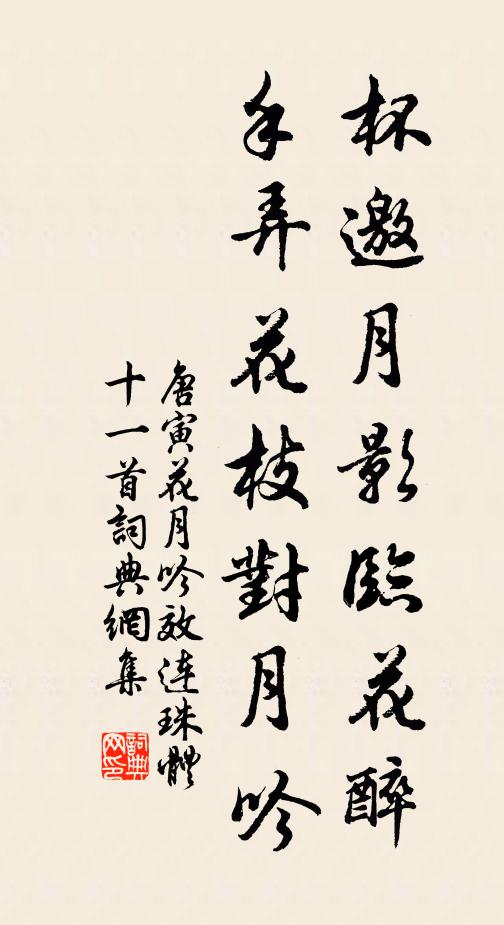 杯邀月影臨花醉
手弄花枝對月吟
唐寅花月吟效连珠體
十一首詞典網集
詞典
网印